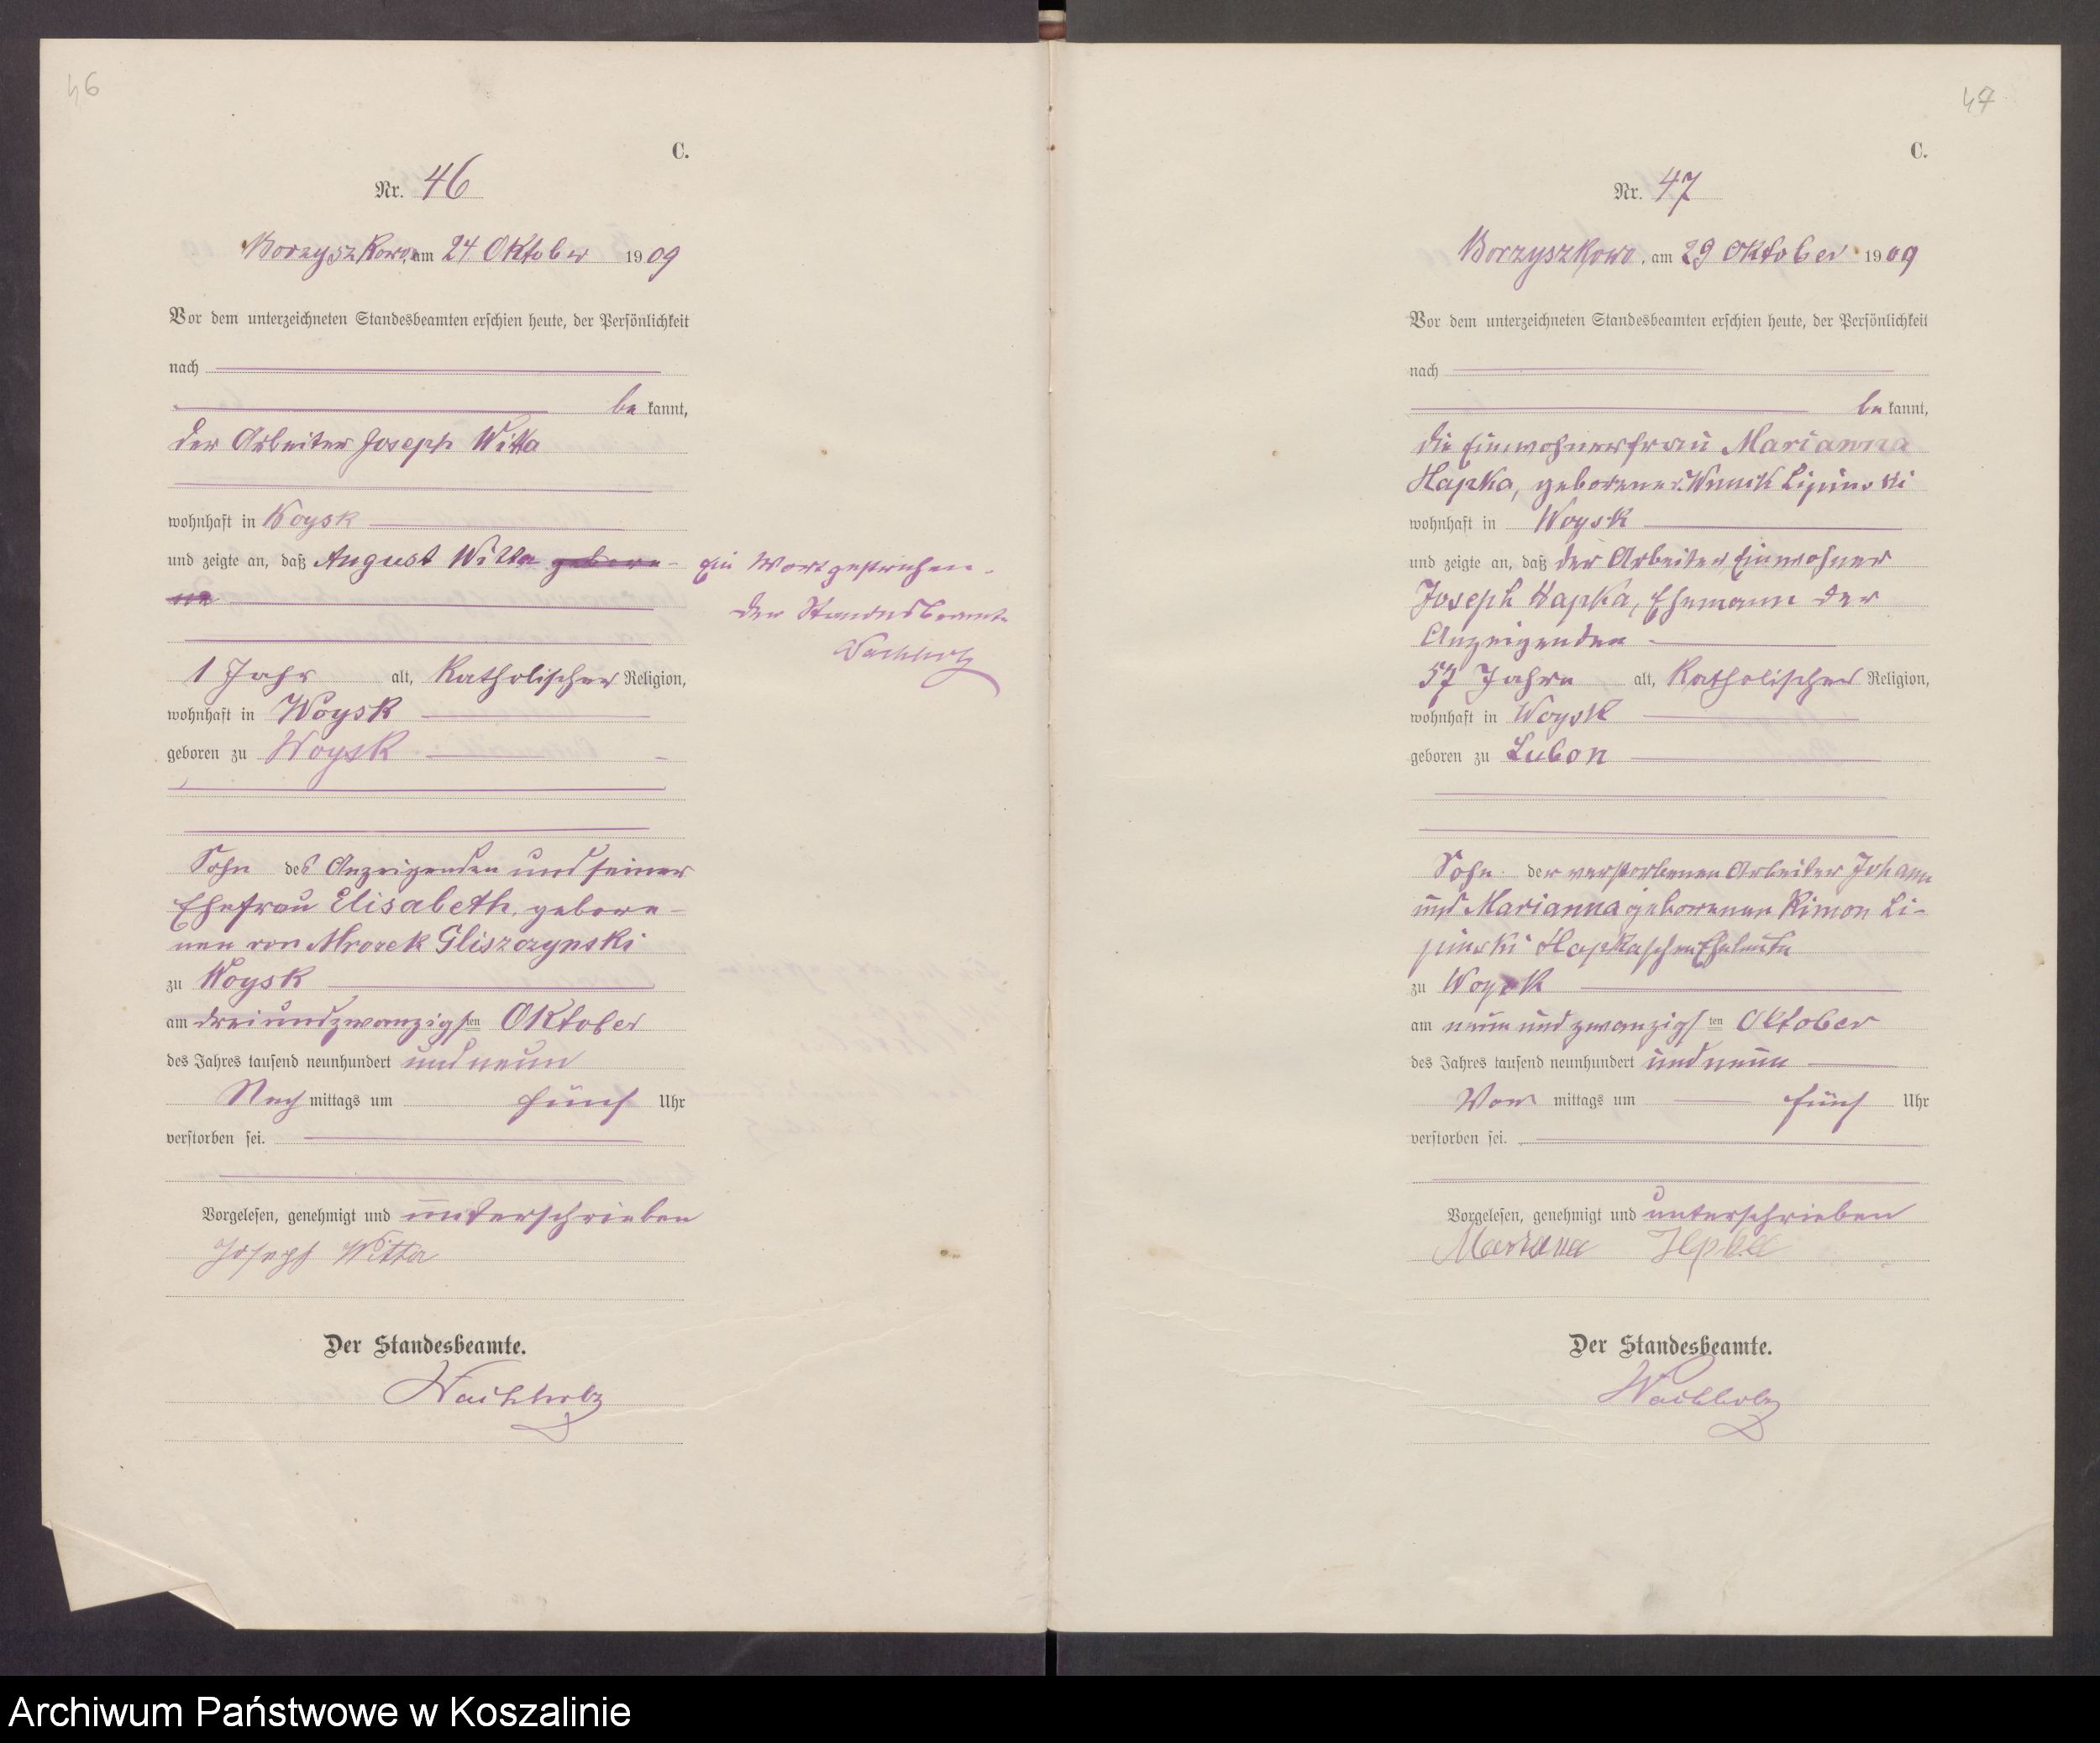 46
C.
Nr. 46
Borzyszkowo, am 24 Oktober 1909
Vor dem unterzeichneten Standesbeamten erschien heute, der Persönlichkeit
nach
be kannt,
der Arbeiter Joseph Witta
wohnhaft in Woysk
und zeigte an, daß August Witta gebore-
ne
Ein Wort gestrichen.
Der Standesbeamte
Wachholz
1 Jahr alt, Katholischer Religion,
wohnhaft in Woysk
geboren zu Woysk
Sohn des Anzeigenden und seiner
Ehefrau Elisabeth, gebore-
nen von Mrozek Gliszczynski
zu Woysk
am dreiundzwanzigsten Oktober
des Jahres tausend neunhundert und neun
Nachmittags um fünf Uhr
verstorben sei.
Vorgelesen, genehmigt und unterschrieben
Joseph Witta
Der Standesbeamte.
Wachholz
47
C.
Nr. 47
Borzyszkowo, am 29 Oktober 1909
Vor dem unterzeichneten Standesbeamten erschien heute, der Persönlichkeit
nach
be kannt,
die Einwohnerfrau Marianna
Hapka, geborene Lipinski
wohnhaft in Woysk
und zeigte an, daß der Arbeiter Einwohner
Joseph Hapka, Ehemann der
Anzeigenden
57 Jahre alt, Katholischer Religion,
wohnhaft in Woysk
geboren zu Lubon
Sohn der verstorbenen Arbeiter Johann
und Marianna geborenen Kimon Li-
pinski Hapkaschen Eheleute
zu Woysk
am neunundzwanzigsten Oktober
des Jahres tausend neunhundert und neun
Vormittags um fünf Uhr
verstorben sei.
Vorgelesen, genehmigt und unterschrieben
Mariana
Der Standesbeamte.
Wachholz
Archiwum Państwowe w Koszalinie